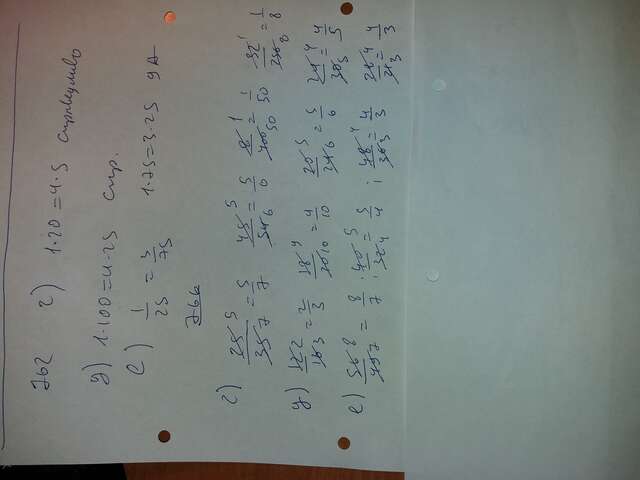 762 г) 1·20 = 4·5 справедливо
д) 1·100 = 4·25 спр.
е) 1/25 = 3/75 1·75 = 3·25 да
766
г) 25 5/35 7 = 5/7 45 5/54 6 = 5/6 8 1/400 50 = 1/50 32 1/256 8 = 1/8
д) 2/3 = 2/3 4/10 = 4/10 20 5/24 6 = 5/6 24 4/30 5 = 4/5
е) 56 8/49 7 = 8/7 ; 40 5/32 4 = 5/4 ; 48 4/36 3 = 4/3 28 4/21 3 = 4/3